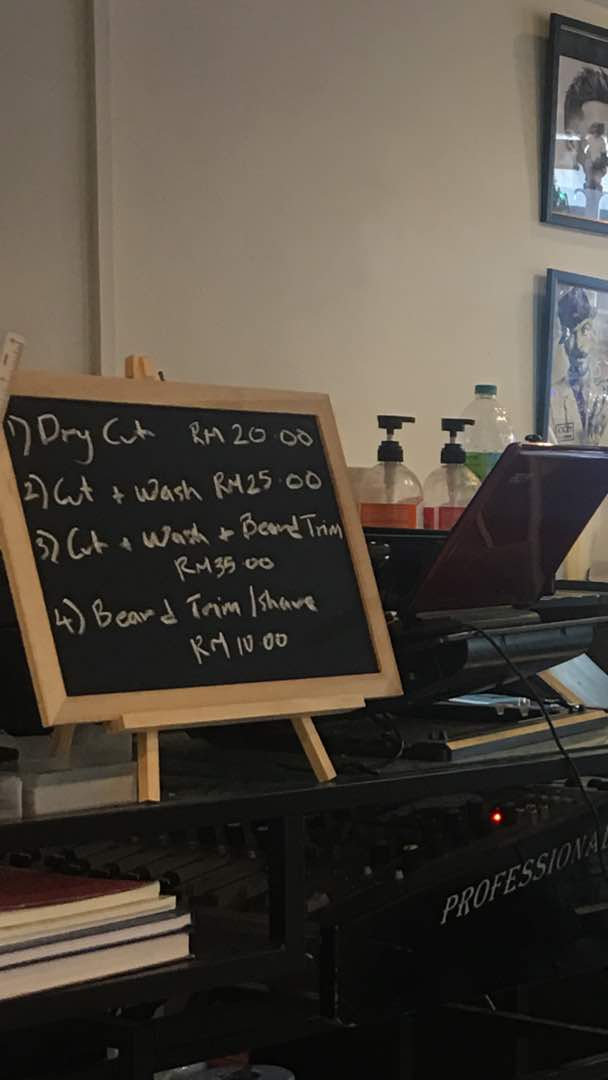 1) Dry Cut RM 20.00
2) Cut + Wash RM 25.00
3) Cut + Wash + Beard Trim
RM 35.00
4) Beard Trim / Shave
RM 10.00
PROFESSIONAL